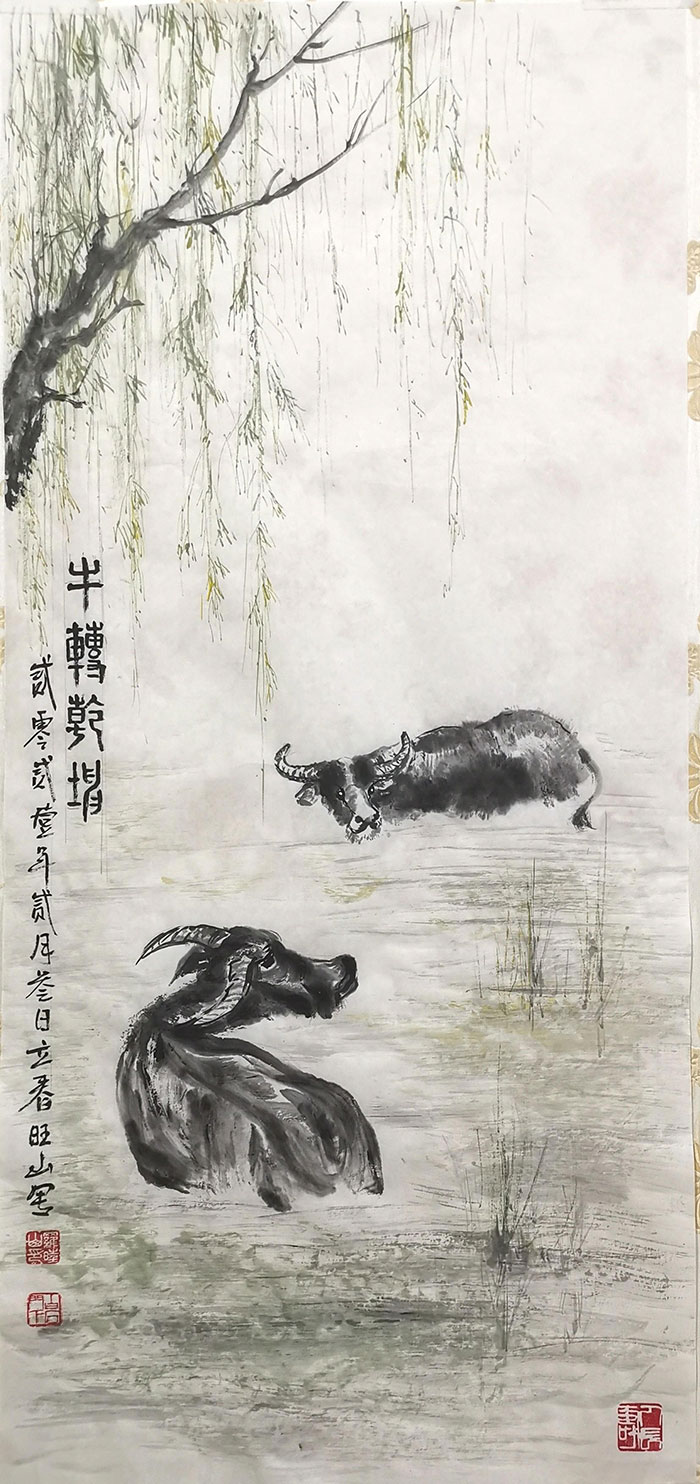 牛轉乾坤
貳零貳壹年貳月叁日立春旺山寫